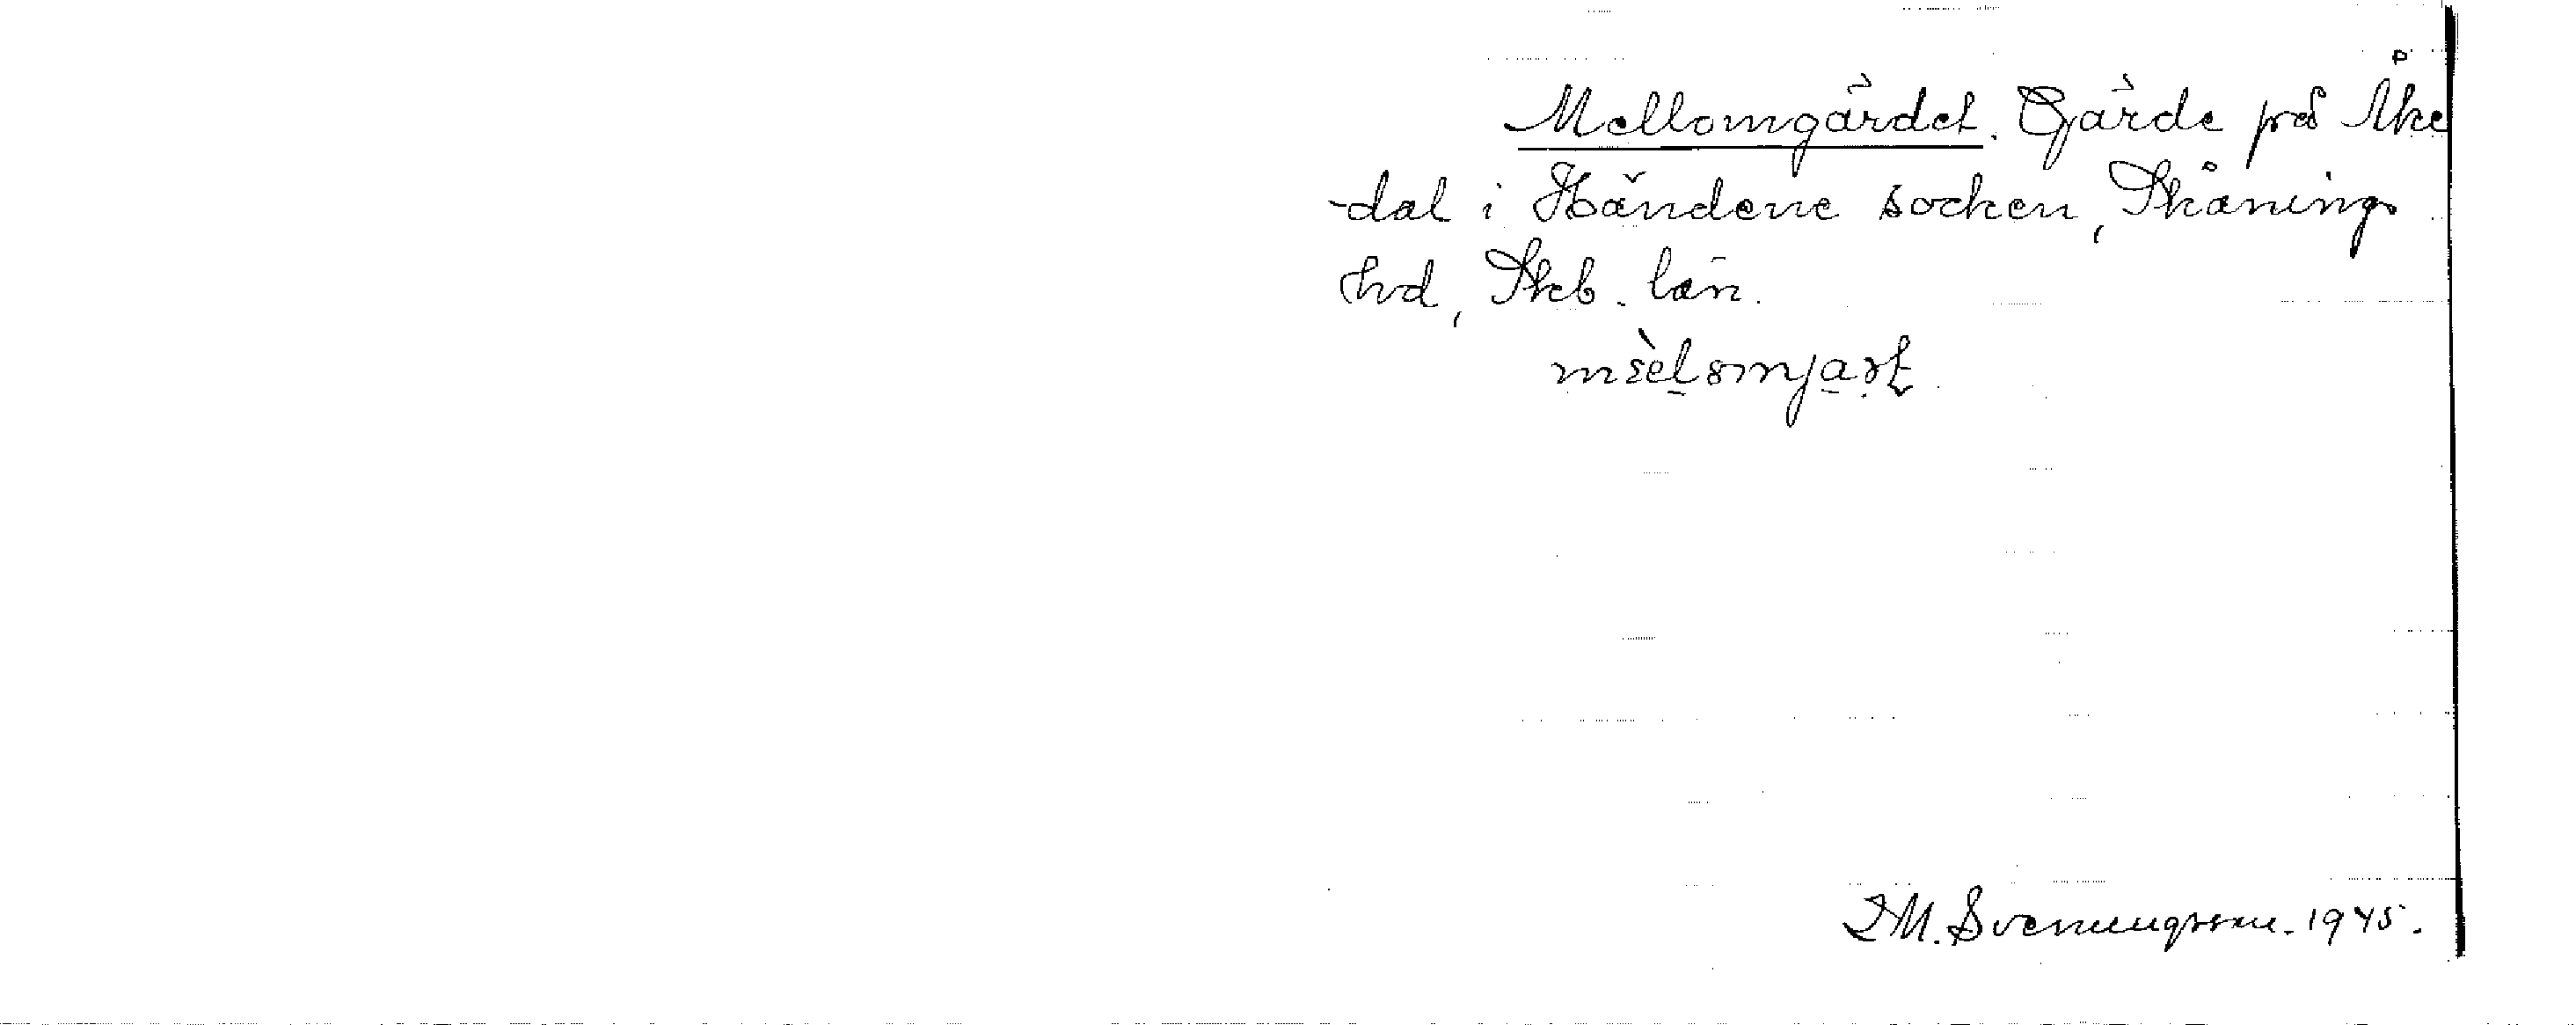 Mellomgärdet. Gärde på Åke
-dal i Händene socken, Skånings
hd, Skb. län.
S M. Svenungsson. 1945.